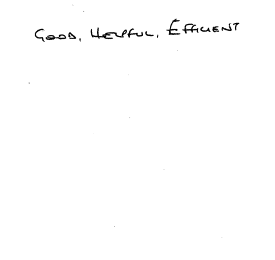 Good, Helpful, Efficient